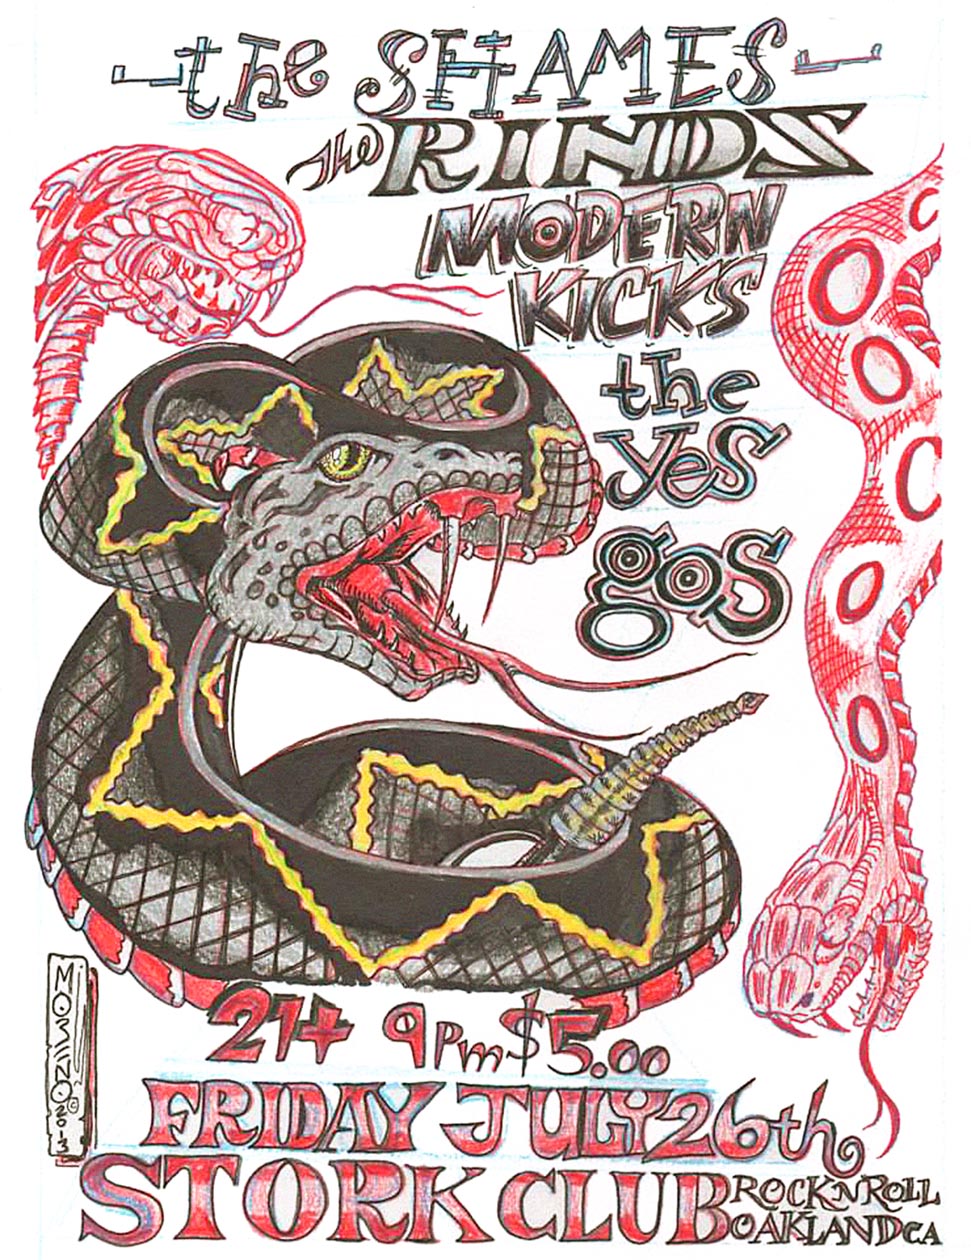 the SHAMES
the RINDS
MODERN
KICKS
the
yes
gos
21+ 9pm $5.00
FRIDAY JULY 26th
STORK CLUB
ROCKNROLL
OAKLAND CA
MORENO © 2013